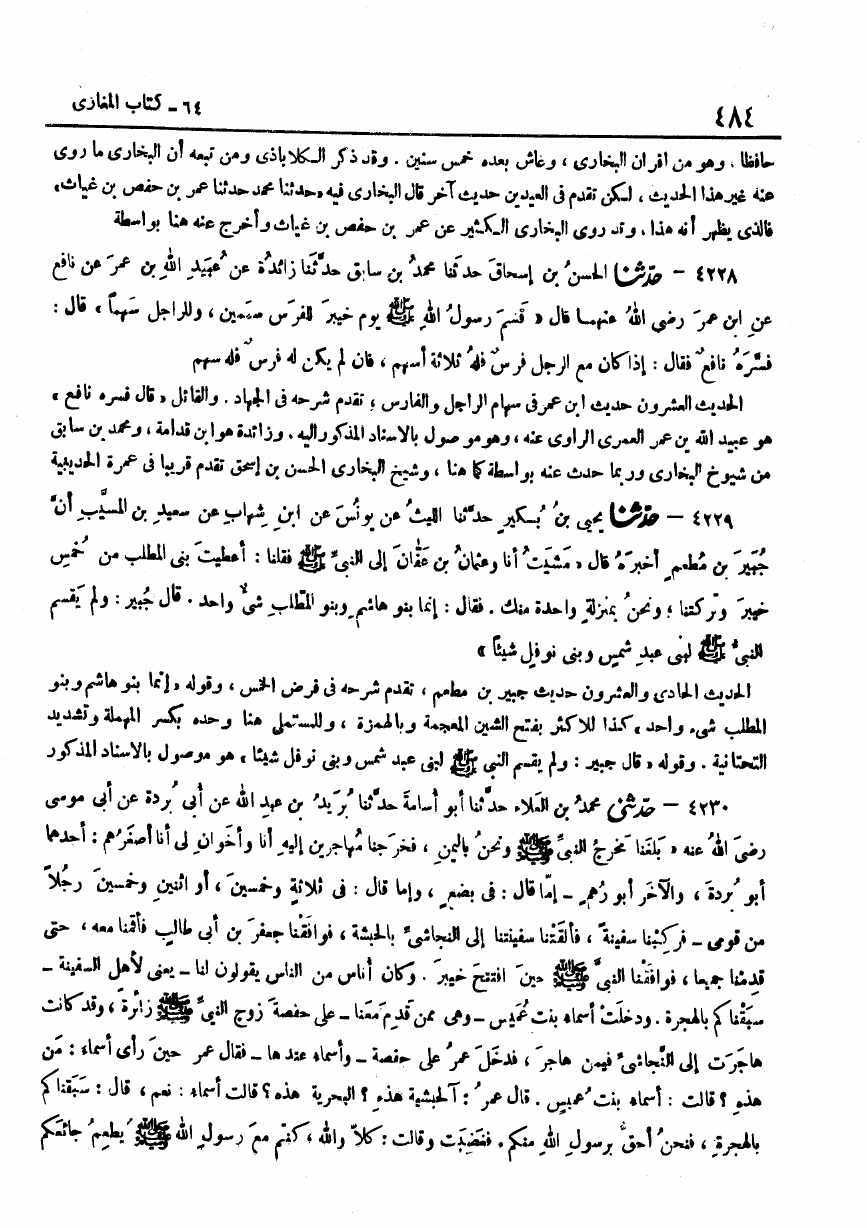 ٤٨٤
٦٤ - كتاب المغازى
حافظا ، وهو من اقران البخارى ، وعاش بعده خمس سنين . وقد ذكر الكلاباذى ومن تبعه أن البخارى ما روى
عنه غير هذا الحديث ، لكن تقدم فى العيدين حديث آخر قال البخارى فيه « حدثنا محمد حدثنا عمر بن حفص بن غياث »
فالذى يظهر أنه هذا . وقد روى البخارى الكثير عن عمر بن حفص بن غياث وأخرج عنه هنا بواسطة
٤٢٢٨ - حدّثنا الحسنُ بن إسحاقَ حدثنا محمدُ بن سابق حدَّثَنا زائدةُ عن عُبَيدِ اللهِ بن عمرَ عن نافع
عنِ ابن عمرَ رضى اللهُ عنهما قال « قَسمَ رسولُ اللهِ ﷺ يوم خيبرَ للفرَس سهمين ، وللراجل سَهماً » قال :
فسَّرَهُ نافعٌ فقال : إذا كان مع الرجل فرسٌ فلهُ ثلاثة أسهم ، فان لم يكن له فرسٌ فله سهم
الحديث العشرون حديث ابن عمر فى سهام الراجل والفارس ، تقدم شرحه فى الجهاد . والقائل « قال فسره نافع »
هو عبيد الله بن عمر العمرى الراوى عنه ، وهو موصول بالاسناد المذكور اليه . وزائدة هو ابن قدامة ، ومحمد بن سابق
من شيوخ البخارى وربما حدث عنه بواسطة كما هنا ، وشيخ البخارى الحسن بن إسحق تقدم قريبا فى عمرة الحديبية
٤٢٢٩ - حدّثنا يحيى بنُ بُكير حدَّثنا الليثُ عن يونُسَ عن ابنِ شِهابٍ عن سعيدِ بن المسيَّبِ أنَّ
جُبَيرَ بن مُطعمٍ أخبرَهُ قال « مَشَيتُ أنا وعثمانُ بن عَفّانَ إلى النبىِّ ﷺ فقلنا : أعطيتَ بنى المطلب من خُمسِ
خيبرَ وتركتنا ، ونحنُ بمنزلةٍ واحدة منك . فقال : إنما بنو هاشمٍ وبنو المطلبِ شىءٌ واحد . قال جُبير : ولم يَقسم
النبىُّ ﷺ لبنى عبدِ شمسٍ وبنى نوفلٍ شيئاً »
الحديث الحادى والعشرون حديث جبير بن مطعم ، تقدم شرحه فى فرض الخمس ، وقوله « إنما بنو هاشم وبنو
المطلب شىء واحد » كذا للاكثر بفتح الشين المعجمة وبالهمزة ، وللمستملى هنا وحده بكسر المهملة وتشديد
التحتانية . وقوله « قال جبير : ولم يقسم النبى ﷺ لبنى عبد شمس وبنى نوفل شيئا » هو موصول بالاسناد المذكور
٤٢٣٠ - حدّثنى محمدُ بن العلاء حدَّثنا أبو أسامةَ حدَّثنا بُرَيدُ بن عبدِ الله عن أبى بُردة عن أبى موسى
رضىَ اللهُ عنه « بَلَغَنا مَخرجُ النبىِّ ﷺ ونحنُ باليمنِ ، فخرَجنا مُهاجرين إليهِ أنا وأخَوانِ لى أنا أصغَرُهم : أحدهما
أبو بُردةَ ، والآخَر أبو رُهمٍ - إمّا قال : فى بضعٍ ، وإما قال : فى ثلاثةٍ وخمسينَ ، أو اثنينِ وخمسينَ رجُلاً
من قومى - فركِبْنا سفينةً ، فألقَتْنا سفينتنا إلى النجاشىِّ بالحبشة ، فوافَقْنا جعفرَ بن أبى طالبٍ فأقمنا معه ، حتى
قدِمْنا جميعا ، فوافَقْنا النبىَّ ﷺ حينَ افتتحَ خيبرَ . وكان أناس من الناس يقولون لنا - يعنى لأهلِ السفينة -
سبَقْناكم بالهجرة . ودخلَتْ أسماء بنت عُمَيس - وهى ممن قَدِمَ مَعَنا - على حفصةَ زوج النبىِّ ﷺ زائرةً ، وقد كانت
هاجَرَت إلى النَّجاشىِّ فيمن هاجرَ ، فدخَلَ عمرُ على حفصة - وأسماء عندها - فقال عمر حينَ رأى أسماءَ : مَن
هذهِ ؟ قالت : أسماء بنتُ عُميس . قال عمرُ : آلحبشيةُ هذهِ ؟ البحرية هذه ؟ قالت أسماء : نعم ، قال : سَبَقناكم
بالهجرةِ ، فنحنُ أحقُّ برسولِ الله منكم . فغضِبَت وقالت : كلاّ والله ، كنتم معَ رسولِ الله ﷺ يُطعِمُ جائعَكم